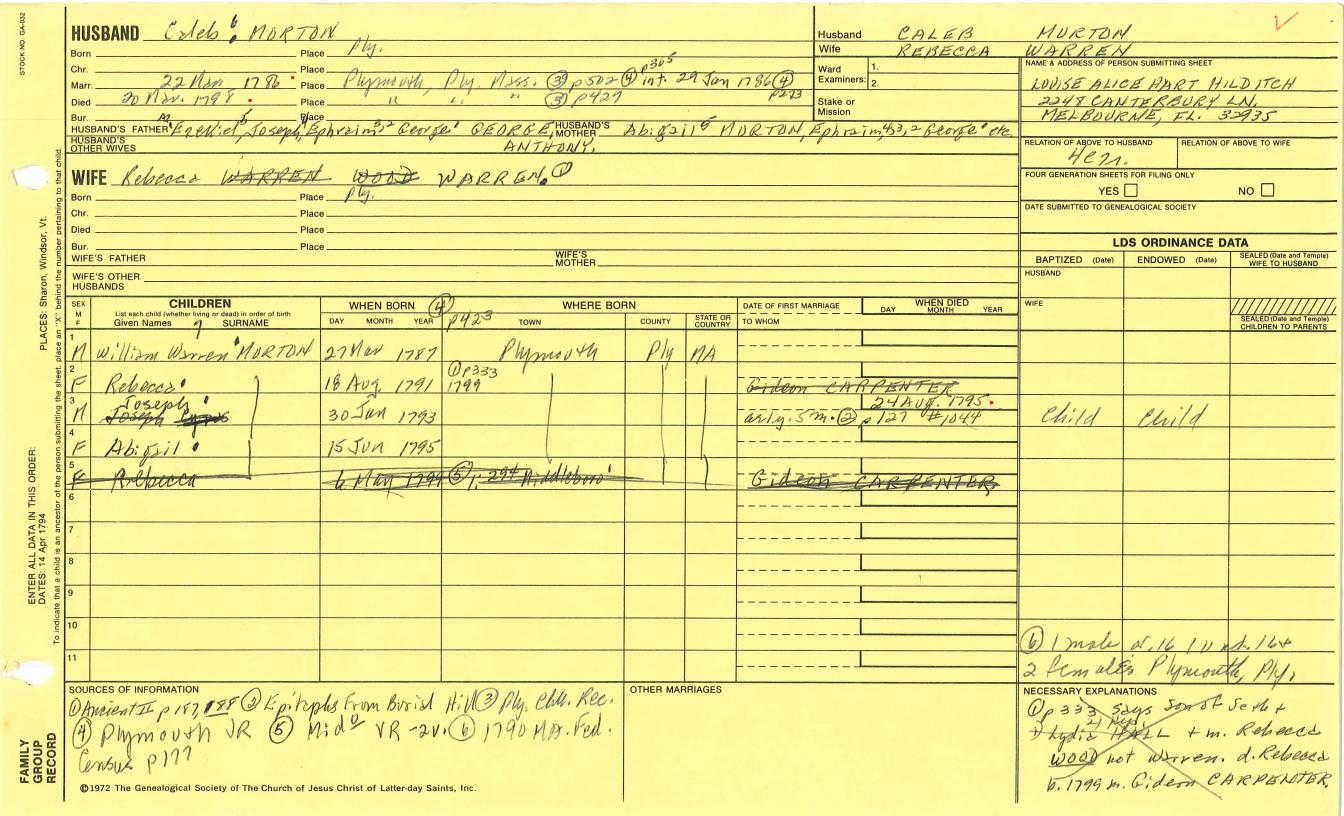 STOCK NO. GA-032
PLACES: Sharon, Windsor, Vt.
ENTER ALL DATA IN THIS ORDER:
DATES: 14 Apr 1794
To indicate that a child is an ancestor of the person submitting the sheet, place an "X" behind the number pertaining to that child.
FAMILY
GROUP
RECORD
HUSBAND Caleb 6 MORTON
Born Place Ply.
Chr. Place
Marr. 22 Mar 1786 Place Plymouth, Ply. Mass. ③ p502 ④ p365 int. 29 Jan 1786 ④ p273
Died 20 Nov. 1798 Place " " " ③ p427
Bur. Place
HUSBAND'S FATHER Ezekiel, Joseph, Ephraim, George GEORGE, HUSBAND'S MOTHER Abigail 5 MORTON, Ephraim 4,3,2 George etc
HUSBAND'S OTHER WIVES ANTHONY.
WIFE Rebecca WARREN WOOD WARREN. ①
Born Place Ply.
Chr. Place
Died Place
Bur. Place
WIFE'S FATHER WIFE'S MOTHER
WIFE'S OTHER HUSBANDS
Husband CALEB MORTON
Wife REBECCA WARREN
Ward Examiners: 1.
2.
Stake or Mission
NAME & ADDRESS OF PERSON SUBMITTING SHEET
LOUISE ALICE HART HILDITCH
2248 CANTERBURY LN.
MELBOURNE, FL. 32935
RELATION OF ABOVE TO HUSBAND RELATION OF ABOVE TO WIFE
4c7r.
FOUR GENERATION SHEETS FOR FILING ONLY
YES NO
DATE SUBMITTED TO GENEALOGICAL SOCIETY
LDS ORDINANCE DATA
BAPTIZED (Date) ENDOWED (Date) SEALED (Date and Temple) WIFE TO HUSBAND
HUSBAND
WIFE
SEALED (Date and Temple) CHILDREN TO PARENTS
SEX M F CHILDREN WHEN BORN ④ p423 WHERE BORN DATE OF FIRST MARRIAGE WHEN DIED
List each child (whether living or dead) in order of birth
Given Names 7 SURNAME DAY MONTH YEAR TOWN COUNTY STATE OR COUNTRY TO WHOM DAY MONTH YEAR
1 M William Warren MORTON 27 Mar 1787 Plymouth Ply MA
2 F Rebecca 18 Aug. 1791 ① p333 1799 Gideon CARPENTER
3 M Joseph Joseph 30 Jan 1793 24 AUG. 1795. a 2 y. 5 m. ② p 127 #1044 Child Child
4 F Abigail 15 Jun 1795
5 F Rebecca 6 May 1799 ⑤ 1:294 Middleboro Gideon CARPENTER
6
7
8
9
10
11
⑥ 1 male ov. 16 1 und. 16 +
2 females Plymouth, Ply.
SOURCES OF INFORMATION
① Ancient II p 187, 188 ② Epitaphs From Burial Hill ③ Ply. Chh. Rec.
④ Plymouth VR ⑤ Mido VR -2v. ⑥ 1790 MA. Fed.
Census p177
OTHER MARRIAGES
NECESSARY EXPLANATIONS
① p 333 says son of Seth +
Lydia HALL + m. Rebecca
WOOD not Warren. d. Rebecca
b. 1799 m. Gideon CARPENTER.
©1972 The Genealogical Society of The Church of Jesus Christ of Latter-day Saints, Inc.